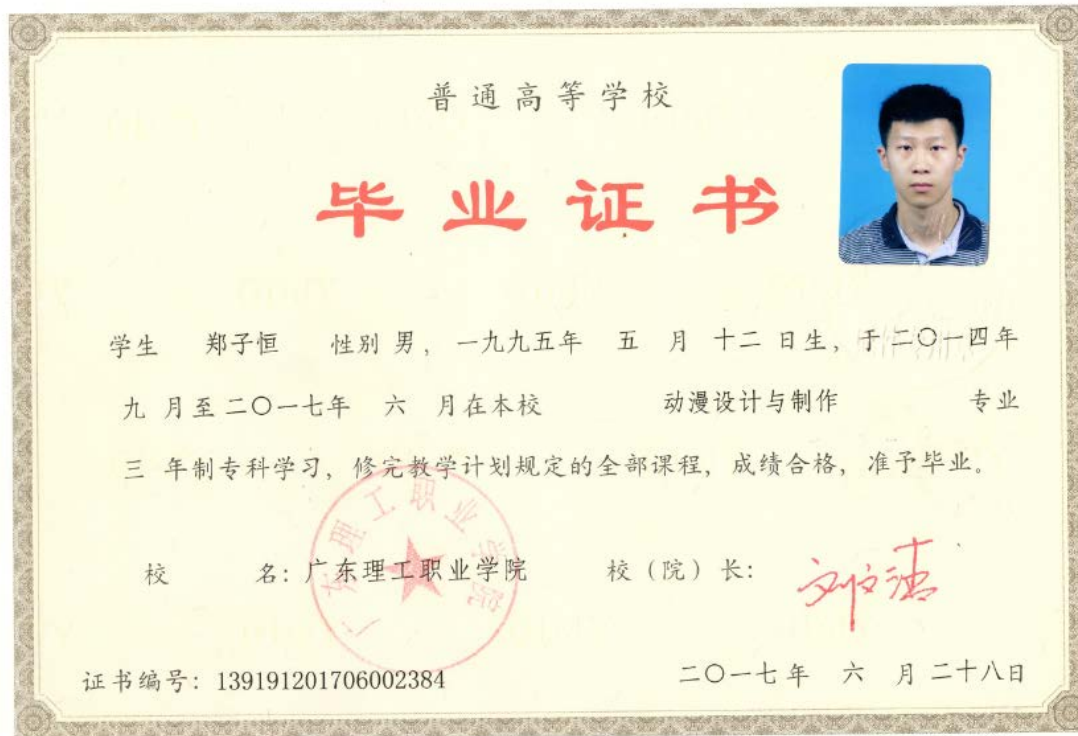 普通高等学校
毕业证书
学生 郑子恒 性别 男，一九九五年 五 月 十二 日生，于二〇一四年
九 月至二〇一七年 六 月在本校 动漫设计与制作 专业
三 年制专科学习，修完教学计划规定的全部课程，成绩合格，准予毕业。
广东理工职业学院
校 名：广东理工职业学院 校（院）长：
证书编号：139191201706002384 二〇一七年 六 月 二十八日